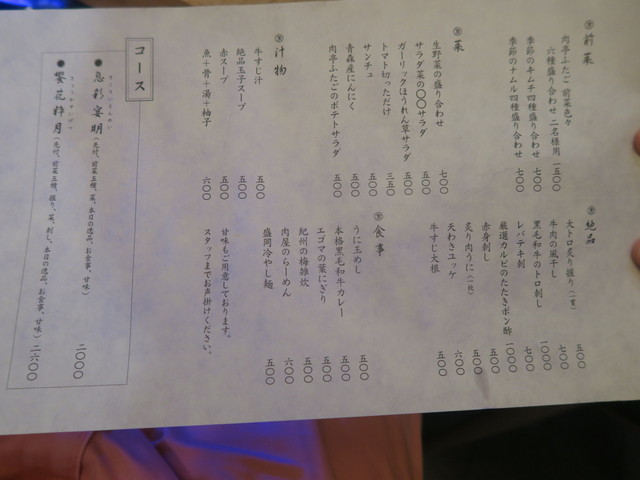 前菜
肉亭ふたご 前菜色々
六種盛り合わせ 二名様用 一五〇〇
季節のキムチ四種盛り合わせ 七〇〇
季節のナムル四種盛り合わせ 七〇〇
菜
生野菜の盛り合わせ 七〇〇
サラダ菜の〇〇サラダ 五〇〇
ガーリックほうれん草サラダ 五〇〇
トマト切っただけ 三五〇
サンチュ 五〇〇
青森産にんにく 五〇〇
肉亭ふたごのポテトサラダ 五〇〇
汁物
牛すじ汁 五〇〇
絶品玉子スープ 五〇〇
赤スープ 五〇〇
魚+骨+湯+柚子 六〇〇
絶品
大トロ炙り握り(一貫) 五〇〇
牛肉の風干し 七〇〇
黒毛和牛のトロ刺し 一〇〇〇
レバテキ刺 七〇〇
厳選カルビのたたきポン酢 一〇〇〇
赤身刺し 五〇〇
炙り肉うに(一枚) 五〇〇
天わさユッケ 六〇〇
牛すじ大根 五〇〇
食事
うに玉めし 五〇〇
本格黒毛和牛カレー 五〇〇
エゴマの葉にぎり 五〇〇
紀州の梅雑炊 五〇〇
肉屋のらーめん 六〇〇
盛岡冷やし麺 五〇〇
甘味もご用意しております。
スタッフまでお声掛けください。
コース
息彩宴明(先付、前菜五種、菜、本日の逸品、お食事、甘味) 二〇〇〇
饗花粋月(先付、前菜五種、握り、菜、刺し、本日の逸品、お食事、甘味) 二六〇〇